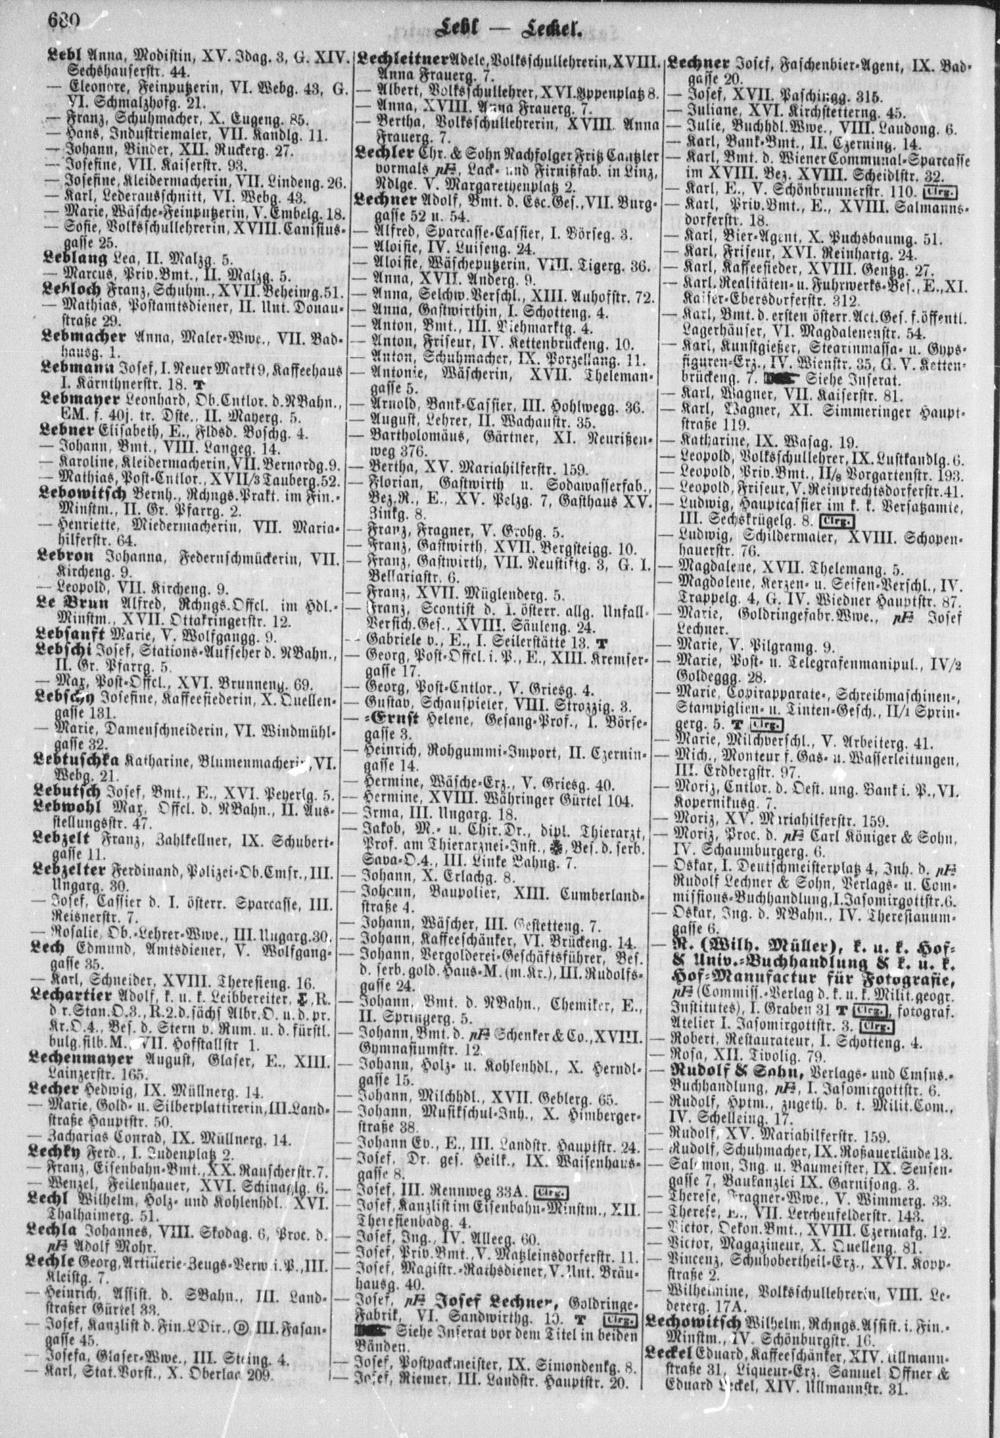 680
Lebl — Leckel.
Lebl Anna, Modistin, XV. Idag. 3, G. XIV.
Sechshauserstr. 44.
— Eleonore, Feinputzerin, VI. Webg. 43, G.
VI. Schmalzhofg. 21.
— Franz, Schuhmacher, X. Eugeng. 85.
— Hans, Industriemaler, VII. Kandlg. 11.
— Johann, Binder, XII. Ruckerg. 27.
— Josefine, VII. Kaiserstr. 93.
— Josefine, Kleidermacherin, VII. Lindeng. 26.
— Karl, Lederausschnitt, VI. Webg. 43.
— Marie, Wäsche-Feinputzerin, V. Embelg. 18.
— Sofie, Volksschullehrerin, XVIII. Canisius-
gasse 25.
Leblang Lea, II. Malzg. 5.
— Marcus, Priv. Bmt., II. Malzg. 5.
Lebloch Franz, Schuhm., XVII. Beheimg. 51.
— Mathias, Postamtsdiener, II. Unt. Donau-
straße 29.
Lebmacher Anna, Maler-Wwe., VII. Bad-
hausg. 1.
Lebmann Josef, I. Neuer Markt 9, Kaffeehaus
I. Kärnthnerstr. 18. T
Lebmayer Leonhard, Ob. Cntlor. d. NBahn.,
EM. f. 40j. tr. Dste., II. Mayerg. 5.
Lebner Elisabeth, E., Fldsd. Boschg. 4.
— Johann, Bmt., VIII. Langeg. 14.
— Karoline, Kleidermacherin, VII. Bernardg. 9.
— Mathias, Post-Cntlor., XVII/3 Tauberg. 52.
Lebowitsch Bernh., Rchngs. Prakt. im Fin.-
Minstm., II. Gr. Pfarrg. 2.
— Henriette, Miedermacherin, VII. Maria-
hilferstr. 64.
Lebron Johanna, Federnschmückerin, VII.
Kircheng. 9.
— Leopold, VII. Kircheng. 9.
Le Brun Alfred, Rchngs. Offcl. im Hdl.-
Minstm., XVII. Ottakringerstr. 12.
Lebsanft Marie, V. Wolfgangg. 9.
Lebschi Josef, Stations-Aufseher d. NBahn.,
II. Gr. Pfarrg. 5.
— Max, Post-Offcl., XVI. Brunneng. 69.
Lebschy Josefine, Kaffeesiederin, X. Quellen-
gasse 131.
— Marie, Damenschneiderin, VI. Windmühl-
gasse 32.
Lebtuschka Katharine, Blumenmacherin, VI.
Webg. 21.
Lebutsch Josef, Bmt., E., XVI. Peyerlg. 5.
Lebwohl Max, Offcl. d. NBahn., II. Aus-
stellungsstr. 47.
Lebzelt Franz, Zahlkellner, IX. Schubert-
gasse 11.
Lebzelter Ferdinand, Polizei-Ob. Cmsr., III.
Ungarg. 30.
— Josef, Cassier d. I. österr. Sparcasse, III.
Reisnerstr. 7.
— Rosalie, Ob.-Lehrer-Wwe., III. Ungarg. 30.
Lech Edmund, Amtsdiener, V. Wolfgang-
gasse 35.
— Karl, Schneider, XVIII. Theresieng. 16.
Lechartier Adolf, k. u. k. Leibbereiter, R.
d r. Stan. O. 3., R. 2. d. sächs Albr. O. u. d. pr.
Kr. O. 4., Bes. d. Stern v. Rum. u. d. fürstl.
bulg. silb. M., VII. Hofstallstr 1.
Lechenmayer August, Glaser, E., XIII.
Lainzerstr. 165.
Lecher Hedwig, IX. Müllnerg. 14.
— Marie, Gold- u. Silberplattirerin, III. Land-
straße Hauptstr. 50.
— Zacharias Conrad, IX. Müllnerg. 14.
Lechky Ferd., I. Judenplatz 2.
— Franz, Eisenbahn-Bmt., XX. Rauscherstr. 7.
— Wenzel, Feilenhauer, XVI. Schinaglg. 6.
Lechl Wilhelm, Holz- und Kohlenhdl. XVI.
Thalhaimerg. 51.
Lechla Johannes, VIII. Skodag. 6, Proc. d.
pH Adolf Mohr.
Lechle Georg, Artillerie-Zeugs-Verw. i. P., III.
Kleistg. 7.
— Heinrich, Assist. d. SBahn., III. Land-
straßer Gürtel 33.
— Josef, Kanzlist d. Fin. L Dir., III. Fasan-
gasse 45.
— Josefa, Glaser-Wwe., III. Steing. 4.
— Karl, Stat. Vorst., X. Oberlaa 209.
Lechleitner Adele, Volksschullehrerin, XVIII.
Anna Frauerg. 7.
— Albert, Volksschullehrer, XVI. Yppenplatz 8.
— Anna, XVIII. Anna Frauerg. 7.
— Bertha, Volksschullehrerin, XVIII. Anna
Frauerg. 7.
Lechler Chr. & Sohn Nachfolger Fritz Cantzler
vormals pH, Lack- und Firnißfab. in Linz,
Ndlge. V. Margarethenplatz 2.
Lechner Adolf, Bmt. d. Esc. Ges., VII. Burg-
gasse 52 u. 54.
— Alfred, Sparcasse-Cassier, I. Börseg. 3.
— Aloisie, IV. Luiseng. 24.
— Aloisie, Wäscheputzerin, VIII. Tigerg. 36.
— Anna, XVII. Anderg. 9.
— Anna, Selchw. Verschl., XIII. Auhofstr. 72.
— Anna, Gastwirthin, I. Schotteng. 4.
— Anton, Bmt., III. Viehmarktg. 4.
— Anton, Friseur, IV. Kettenbrückeng. 10.
— Anton, Schuhmacher, IX. Porzellang. 11.
— Antonie, Wäscherin, XVII. Theleman-
gasse 5.
— Arnold, Bank-Cassier, III. Hohlwegg. 36.
— August, Lehrer, II. Wachaustr. 35.
— Bartholomäus, Gärtner, XI. Neurißen-
weg 376.
— Bertha, XV. Mariahilferstr. 159.
— Florian, Gastwirth u. Sodawasserfab.,
Bez. R., E., XV. Pelzg. 7, Gasthaus XV.
Zinkg. 8.
— Franz, Fragner, V. Grohg. 5.
— Franz, Gastwirth, XVII. Bergsteigg. 10.
— Franz, Gastwirth, VII. Neustiftg. 3, G. I.
Bellariastr. 6.
— Franz, XVII. Müglenderg. 5.
— Franz, Scontist d. I. österr. allg. Unfall-
Versich. Ges., XVIII. Säuleng. 24.
— Gabriele v., E., I. Seilerstätte 13. T
— Georg, Post-Offcl. i. P., E., XIII. Kremser-
gasse 17.
— Georg, Post-Cntlor., V. Griesg. 4.
— Gustav, Schauspieler, VIII. Strozzig. 3.
— -Ernst Helene, Gesang-Prof., I. Börse-
gasse 3.
— Heinrich, Rohgummi-Import, II. Czernin-
gasse 14.
— Hermine, Wäsche-Erz., V. Griesg. 40.
— Hermine, XVIII. Währinger Gürtel 104.
— Irma, III. Ungarg. 18.
— Jakob, M.- u. Chir. Dr., dipl. Thierarzt,
Prof. am Thierarznei-Inst., Bes. d. serb.
Sava-O. 4., III. Linke Bahng. 7.
— Johann, X. Erlachg. 8.
— Johann, Baupolier, XIII. Cumberland-
straße 4.
— Johann, Wäscher, III. Gestetteng. 7.
— Johann, Kaffeeschänker, VI. Brückeng. 14.
— Johann, Vergolderei-Geschäftsführer, Bes.
d. serb. gold. Haus-M. (m. Kr.), III. Rudolfs-
gasse 24.
— Johann, Bmt. d. NBahn., Chemiker, E.,
II. Springerg. 5.
— Johann, Bmt. d. pH Schenker & Co., XVIII.
Gymnasiumstr. 12.
— Johann, Holz- u. Kohlenhdl., X. Herndl-
gasse 15.
— Johann, Milchhdl., XVII. Geblerg. 65.
— Johann, Musikschul-Inh., X. Himberger-
straße 38.
— Johann Ev., E., III. Landstr. Hauptstr. 24.
— Josef, Dr. ges. Heilk., IX. Waisenhaus-
gasse 8.
— Josef, III. Rennweg 33A. Clrg.
— Josef, Kanzlist im Eisenbahn-Minstm., XII.
Theresienbadg. 4.
— Josef, Ing., IV. Alleeg. 60.
— Josef, Priv. Bmt., V. Matzleinsdorferstr. 11.
— Josef, Magistr.-Rathsdiener, V. Unt. Bräu-
hausg. 40.
— Josef, pH Josef Lechner, Goldringe-
Fabrik, VI. Sandwirthg. 10. T Clrg.
Siehe Inserat vor dem Titel in beiden
Bänden.
— Josef, Postpackmeister, IX. Simondenkg. 8.
— Josef, Riemer, III. Landstr. Hauptstr. 20.
Lechner Josef, Faschenbier-Agent, IX. Bad-
gasse 20.
— Josef, XVII. Paschingg. 315.
— Juliane, XVI. Kirchstetterng. 45.
— Julie, Buchhdl. Wwe., VIII. Laudong. 6.
— Karl, Bank-Bmt., II. Czerning. 14.
— Karl, Bmt. d. Wiener Communal-Sparcasse
im XVIII. Bez. XVIII. Scheidlstr. 32.
— Karl, E., V. Schönbrunnerstr. 110. Clrg.
— Karl, Priv. Bmt., E., XVIII. Salmanns-
dorferstr. 18.
— Karl, Bier-Agent, X. Puchsbaumg. 51.
— Karl, Friseur, XVI. Reinhartg. 24.
— Karl, Kaffeesieder, XVIII. Gentzg. 27.
— Karl, Realitäten- u. Fuhrwerks-Bes., E., XI.
Kaiser-Ebersdorferstr. 312.
— Karl, Bmt. d. ersten österr. Act. Ges. f. öffentl.
Lagerhäuser, VI. Magdalenenstr. 54.
— Karl, Kunstgießer, Stearinmasse- u. Gyps-
figuren-Erz., IV. Wienstr. 35, G. V. Ketten-
brückeng. 7. Siehe Inserat.
— Karl, Wagner, VII. Kaiserstr. 81.
— Karl, Wagner, XI. Simmeringer Haupt-
straße 119.
— Katharine, IX. Wasag. 19.
— Leopold, Volksschullehrer, IX. Lustkandlg. 6.
— Leopold, Priv. Bmt., II/8 Vorgartenstr. 193.
— Leopold, Friseur, V. Reinprechtsdorferstr. 41.
— Ludwig, Hauptcassier im k. k. Versatzamte,
III. Sechskrügelg. 8. Clrg.
— Ludwig, Schildermaler, XVIII. Schopen-
hauerstr. 76.
— Magdalene, XVII. Thelemang. 5.
— Magdolene, Kerzen- u. Seifen-Verschl., IV.
Trappelg. 4, G. IV. Wiedner Hauptstr. 87.
— Marie, Goldringefabr. Wwe., pH Josef
Lechner.
— Marie, V. Pilgramg. 9.
— Marie, Post- u. Telegrafenmanipul., IV/2
Goldeggg. 28.
— Marie, Copirapparate-, Schreibmaschinen-,
Stampiglien- u. Tinten-Gesch., II/1 Sprin-
gerg. 5. T Clrg.
— Marie, Milchverschl., V. Arbeiterg. 41.
— Mich., Monteur f. Gas- u. Wasserleitungen,
III. Erdbergstr. 97.
— Moriz, Cntlor. d. Oest. ung. Bank i. P., VI.
Kopernikusg. 7.
— Moriz, XV. Mariahilferstr. 159.
— Moriz, Proc. d. pH Carl Königer & Sohn,
IV. Schaumburgerg. 6.
— Oskar, I. Deutschmeisterplatz 4, Inh. d. pH
Rudolf Lechner & Sohn, Verlags- u. Com-
missions-Buchhandlung, I. Jasomirgottstr. 6.
— Oskar, Ing. d. NBahn., IV. Theresianum-
gasse 6.
— R. (Wilh. Müller), k. u. k. Hof-
& Univ.-Buchhandlung & k. u. k.
Hof-Manufactur für Fotografie,
pH (Commiss.-Verlag d. k. u. k. Milit. geogr.
Institutes), I. Graben 31 T Clrg., fotograf.
Atelier I. Jasomirgottstr. 3. Clrg.
— Robert, Restaurateur, I. Schotteng. 4.
— Rosa, XII. Tivolig. 79.
— Rudolf & Sohn, Verlags- und Cmsns.-
Buchhandlung, pH, I. Jasomirgottstr. 6.
— Rudolf, Hptm., zugeth. d. t. Milit. Com.,
IV. Schelleing. 17.
— Rudolf, XV. Mariahilferstr. 159.
— Rudolf, Schuhmacher, IX. Roßauerlände 13.
— Salomon, Ing. u. Baumeister, IX. Sensen-
gasse 7, Baukanzlei IX. Garnisong. 3.
— Therese, Fragner-Wwe., V. Wimmerg. 33.
— Therese, E., VII. Lerchenfelderstr. 143.
— Victor, Oekon. Bmt., XVIII. Czermakg. 12.
— Victor, Magazineur, X. Quelleng. 81.
— Vincenz, Schuhobertheil-Erz., XVI. Kopp-
straße 2.
— Wilhelmine, Volksschullehrerin, VIII. Le-
dererg. 17A.
Lechowitsch Wilhelm, Rchngs. Assist. i. Fin.-
Minstm., IV. Schönburgstr. 16.
Leckel Eduard, Kaffeeschänker, XIV. Ullmann-
straße 31, Liqueur-Erz. Samuel Offner &
Eduard Leckel, XIV. Ullmannstr. 31.